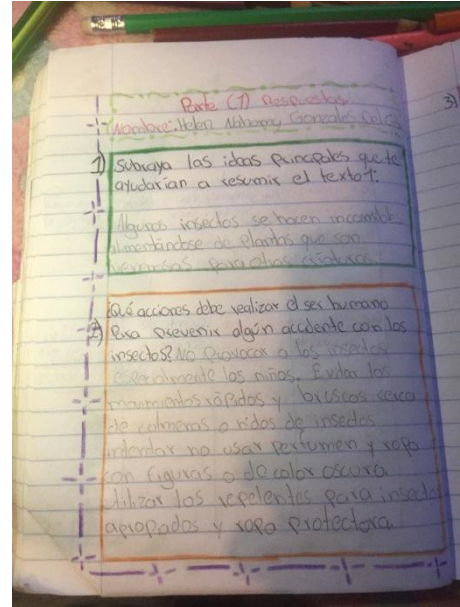 Parte (1) Respuestas
Nombre: Helen Nahomy Gonzales Del C
1) Subraya las ideas principales que te
ayudarían a resumir el texto 1:
Algunos insectos se hacen incomibles
alimentándose de plantas que son
venenosas para otras criaturas.
Qué acciones debe realizar el ser humano
2) Para prevenir algún accidente con los
insectos? No provocar a los insectos
especialmente los niños. Evitar los
movimientos rápidos y bruscos cerca
de colmenas o nidos de insectos
intentar no usar perfumen y ropa
con figuras o de color oscura
Utilizar los repelentes para insecto
apropados y ropa protectora
3)